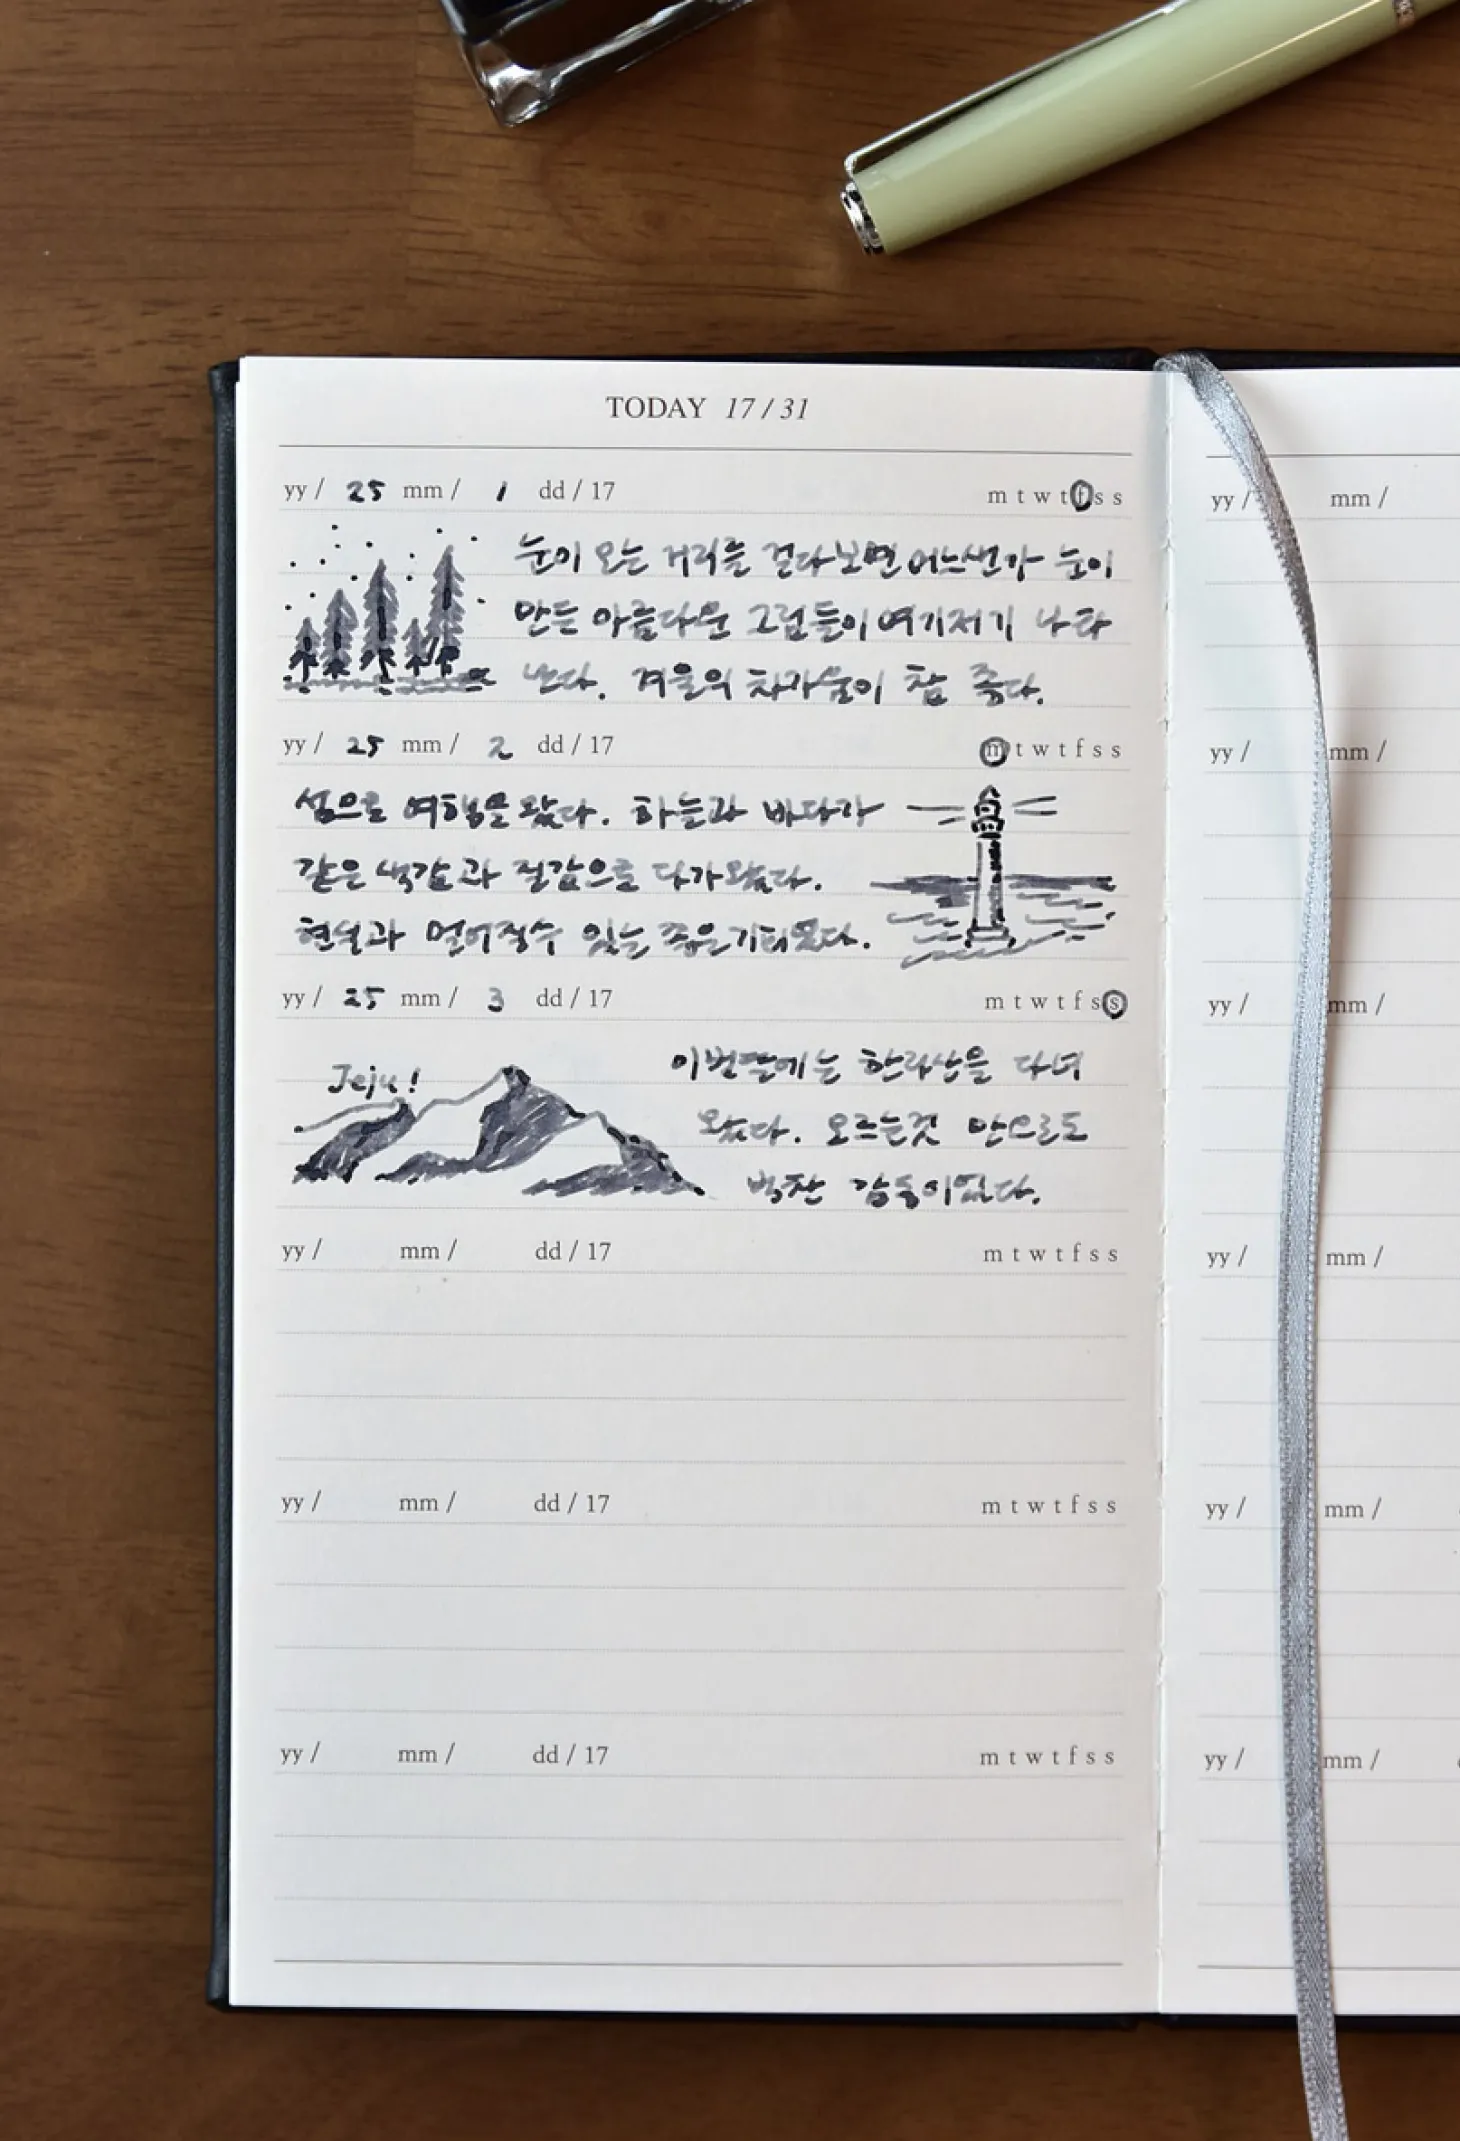 TODAY 17 / 31
yy / 25 mm / 1 dd / 17 m t w t f s s
눈이 오는 거리를 걷다보면 어느샌가 눈이
만든 아름다운 그림들이 여기저기 나타
난다. 겨울의 차가움이 참 좋다.
yy / 25 mm / 2 dd / 17 m t w t f s s
섬으로 여행을 왔다. 하늘과 바다가
같은 색감과 질감으로 다가왔다.
현실과 멀어질수 있는 좋은기회였다.
yy / 25 mm / 3 dd / 17 m t w t f s s
Jeju!
이번달에는 한라산을 다녀
왔다. 오르는것 만으로도
벅찬 감동이었다.
yy / mm / dd / 17 m t w t f s s
yy / mm / dd / 17 m t w t f s s
yy / mm / dd / 17 m t w t f s s
yy / mm /
yy / mm /
yy / mm /
yy / mm /
yy / mm /
yy / mm /